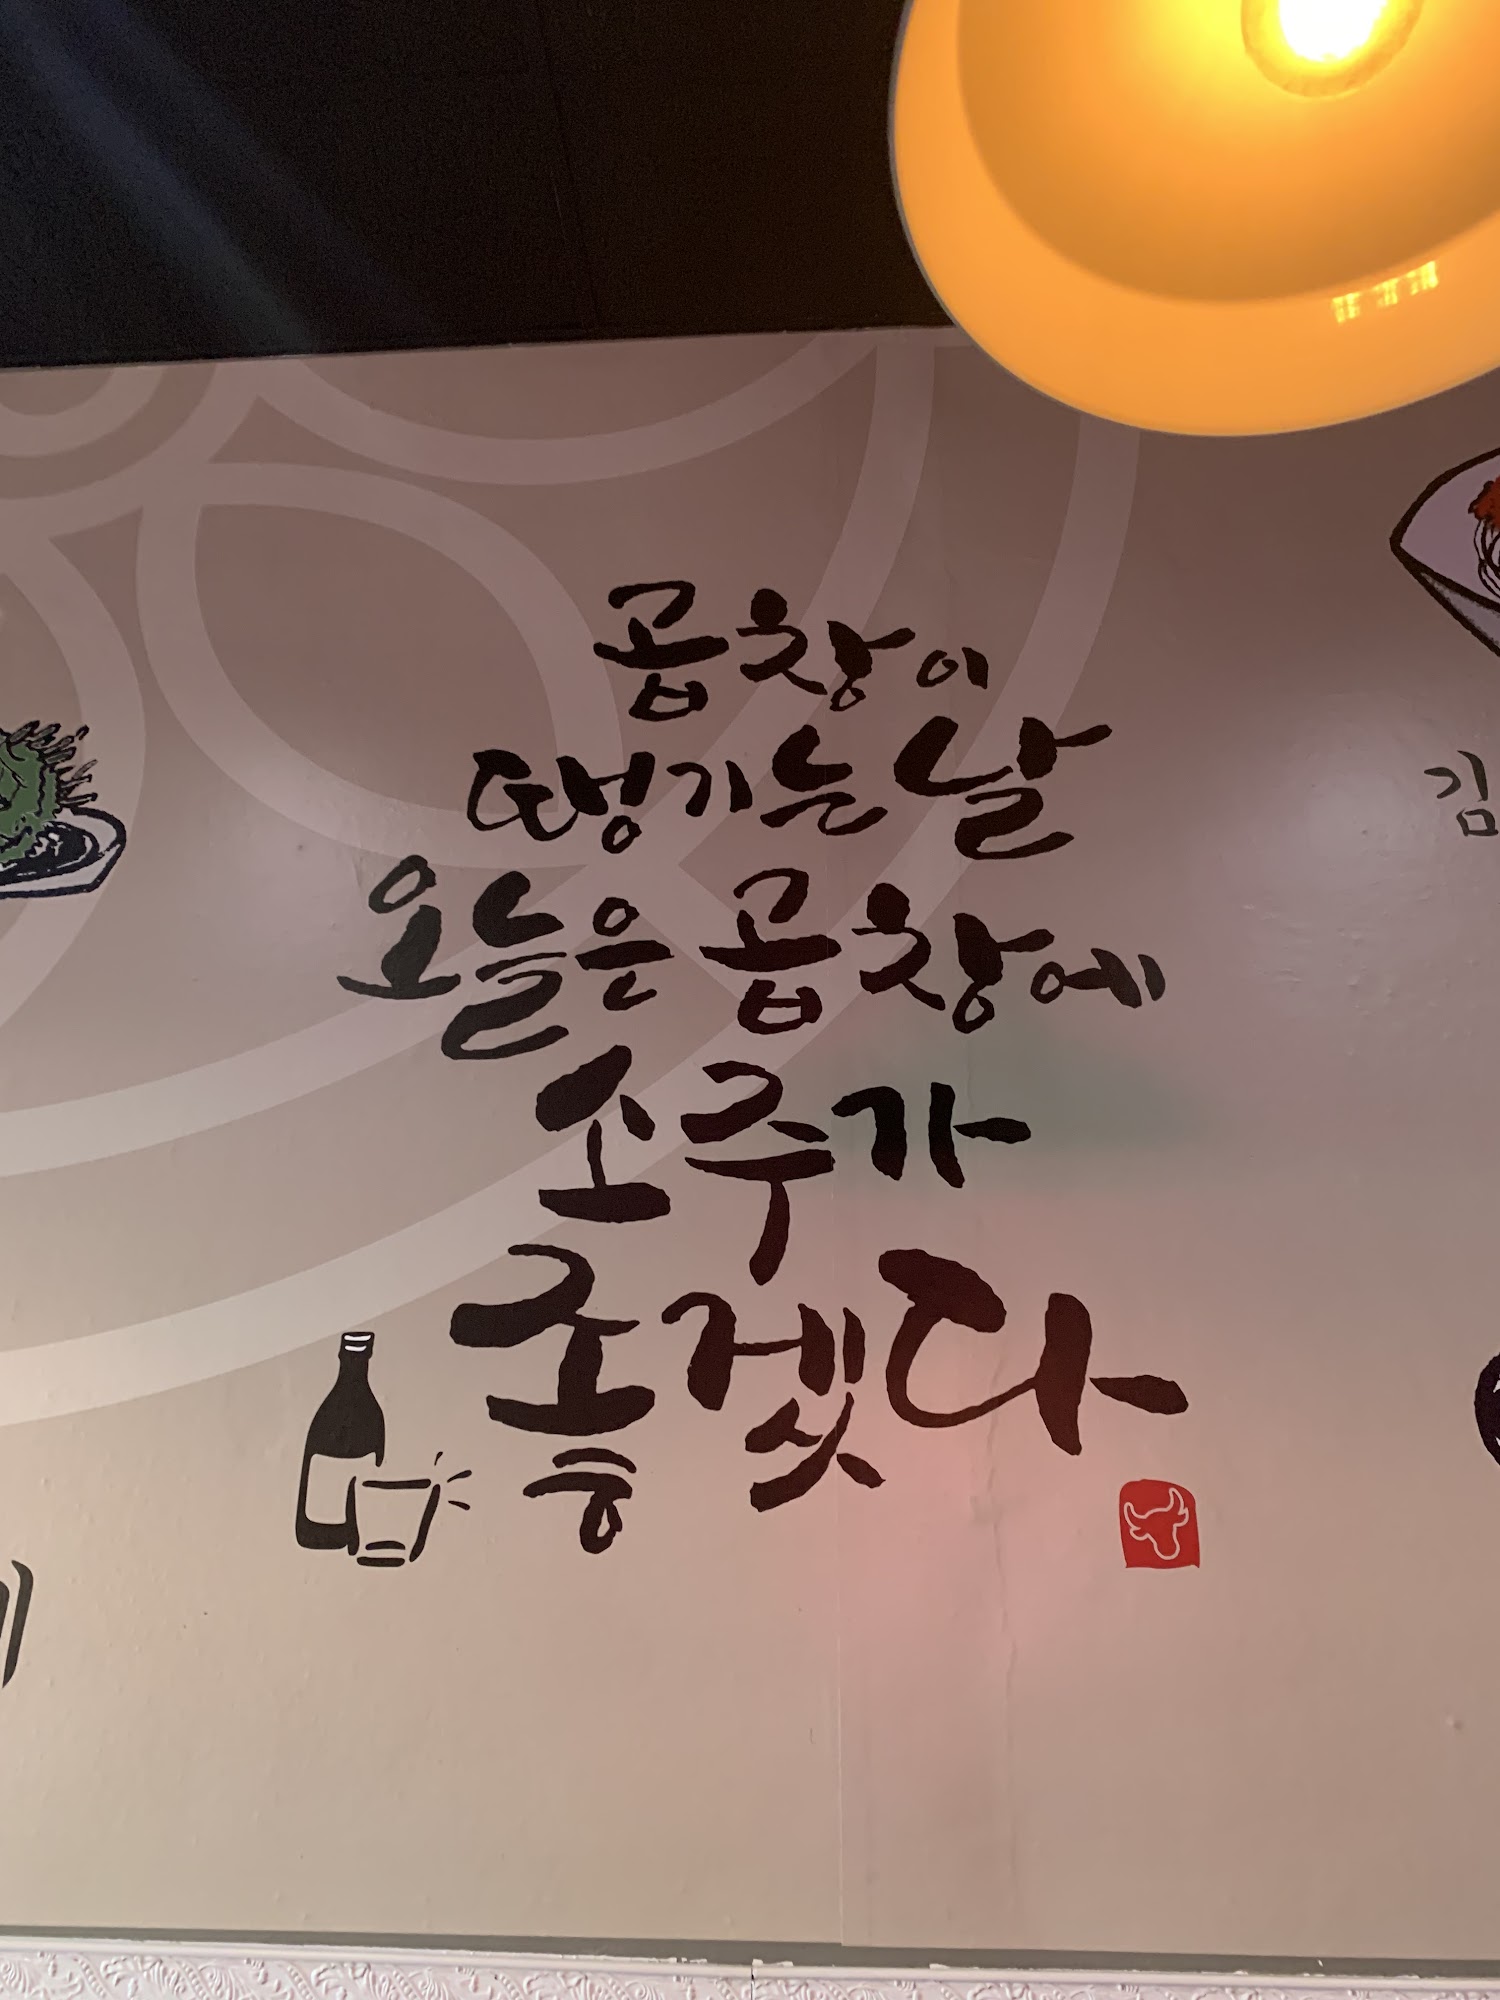 곱창이
땡기는날
김
오늘은 곱창에
소주가
좋겠다